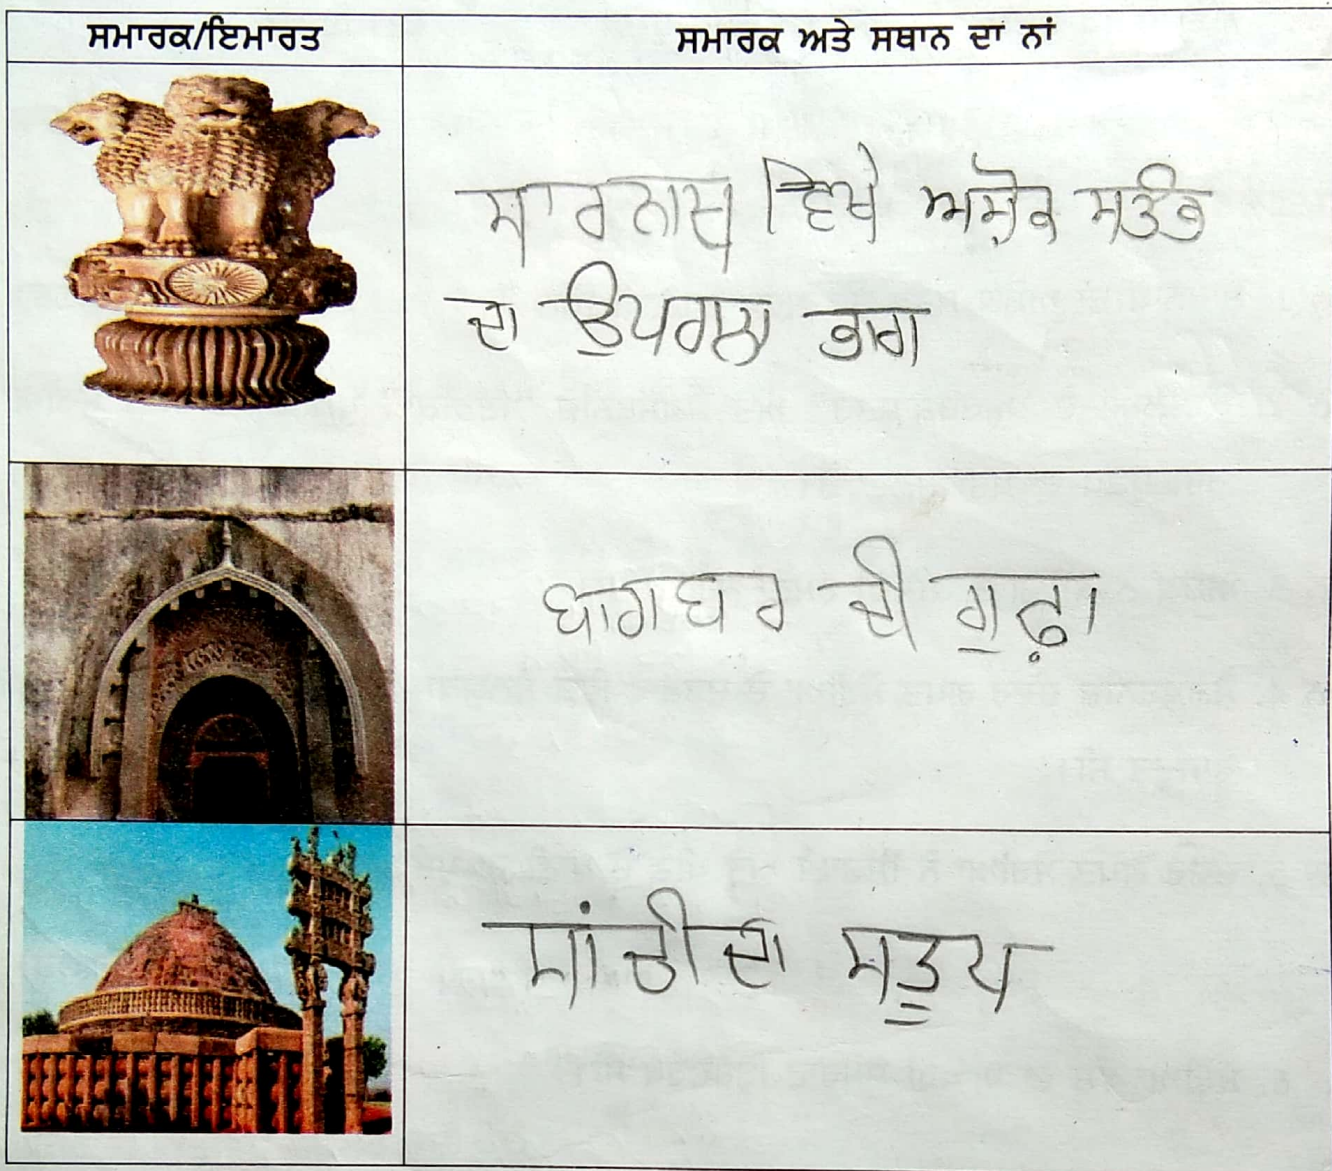 ਸਮਾਰਕ/ਇਮਾਰਤ
ਸਮਾਰਕ ਅਤੇ ਸਥਾਨ ਦਾ ਨਾਂ
ਸਾਰਨਾਥ ਵਿਖੇ ਅਸ਼ੋਕ ਸਤੰਭ
ਦਾ ਉਪਰਲਾ ਭਾਗ
ਬਾਰਾਬਰ ਦੀ ਗੁਫ਼ਾ
ਸਾਂਚੀ ਦਾ ਸਤੂਪ